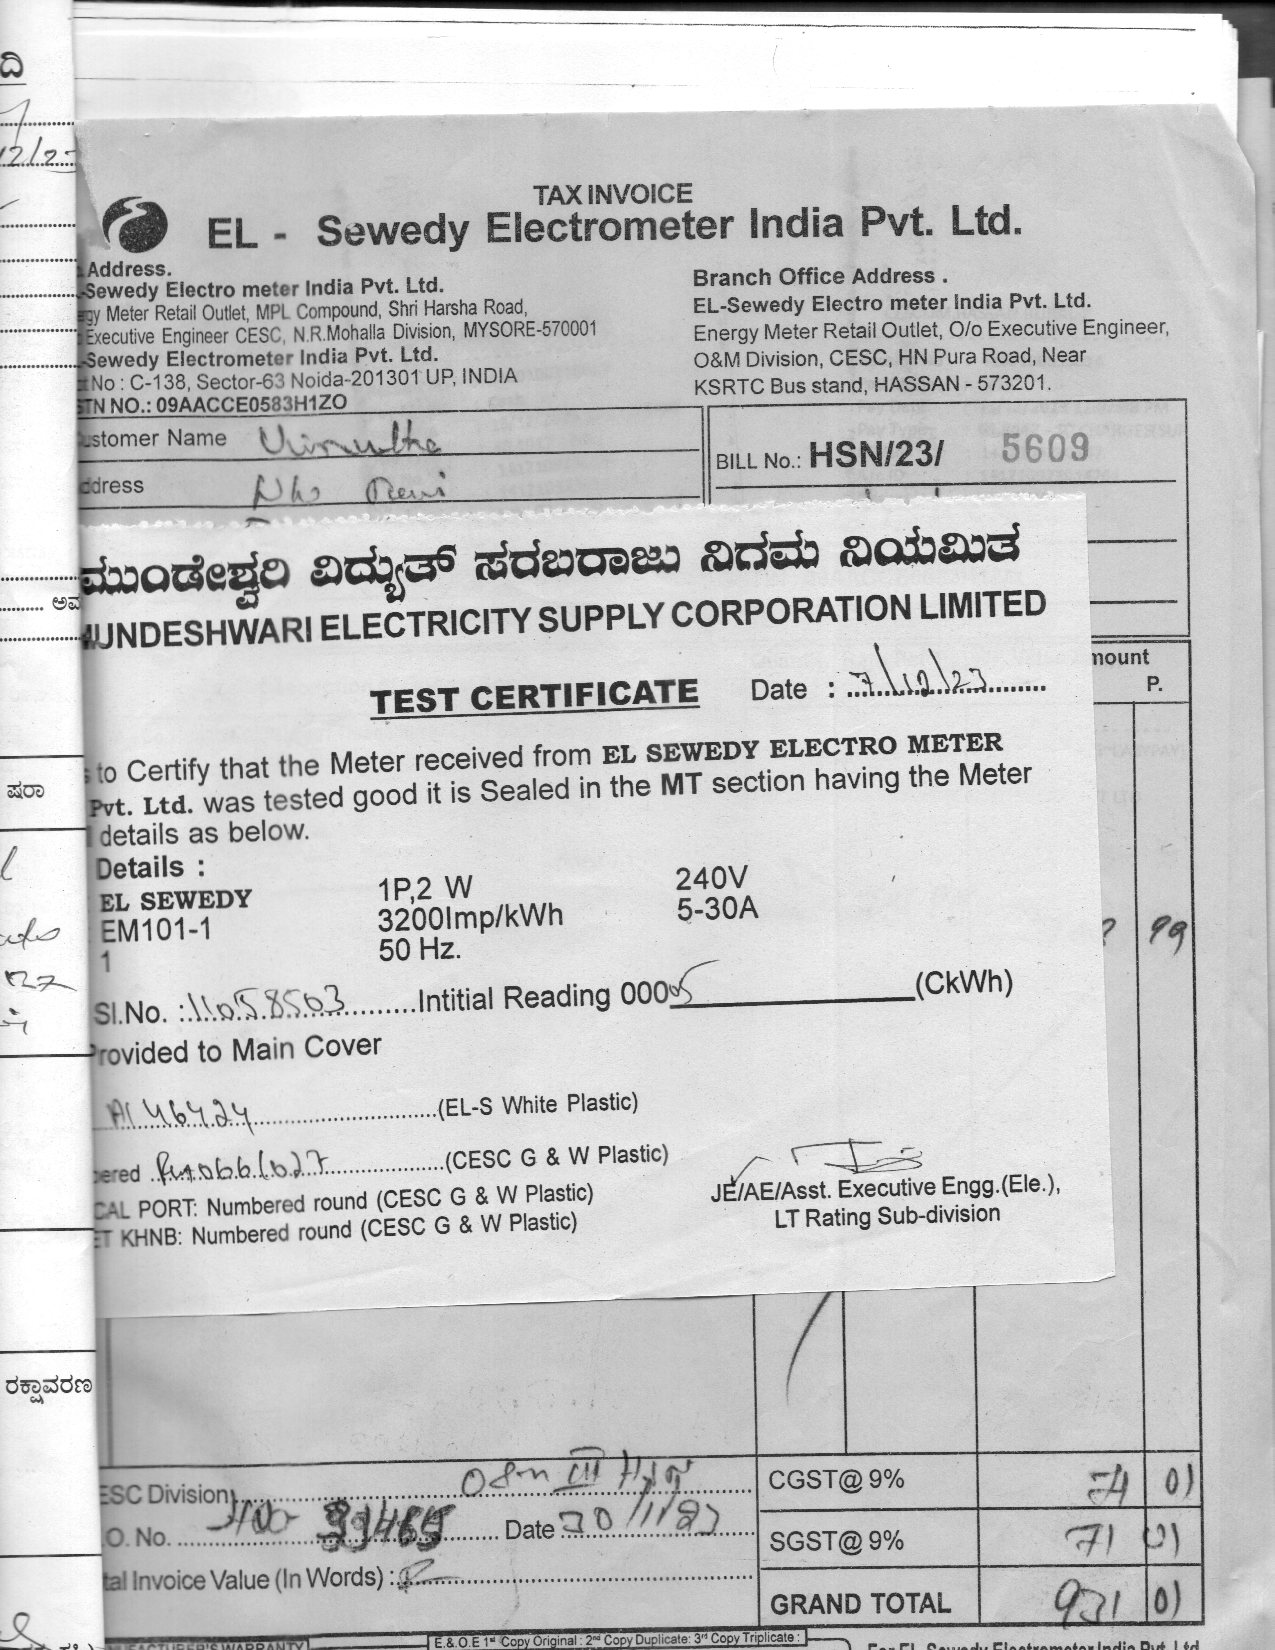 ದಿ
12/2
TAX INVOICE
EL - Sewedy Electrometer India Pvt. Ltd.
Address.
Sewedy Electro meter India Pvt. Ltd.
gy Meter Retail Outlet, MPL Compound, Shri Harsha Road,
Executive Engineer CESC, N.R.Mohalla Division, MYSORE-570001
Sewedy Electrometer India Pvt. Ltd.
No : C-138, Sector-63 Noida-201301 UP, INDIA
TN NO.: 09AACCE0583H1ZO
Branch Office Address .
EL-Sewedy Electro meter India Pvt. Ltd.
Energy Meter Retail Outlet, O/o Executive Engineer,
O&M Division, CESC, HN Pura Road, Near
KSRTC Bus stand, HASSAN - 573201.
ustomer Name
ddress
BILL No.: HSN/23/ 5609
ಮುಂಡೇಶ್ವರಿ ವಿದ್ಯುತ್ ಸರಬರಾಜು ನಿಗಮ ನಿಯಮಿತ
MUNDESHWARI ELECTRICITY SUPPLY CORPORATION LIMITED
TEST CERTIFICATE Date : 7/12/23
mount
P.
to Certify that the Meter received from EL SEWEDY ELECTRO METER
Pvt. Ltd. was tested good it is Sealed in the MT section having the Meter
details as below.
Details :
EL SEWEDY 1P,2 W 240V
EM101-1 3200Imp/kWh 5-30A
1 50 Hz.
99
Sl.No. :11058503 Intitial Reading 00005 (CkWh)
rovided to Main Cover
(EL-S White Plastic)
ered (CESC G & W Plastic)
CAL PORT: Numbered round (CESC G & W Plastic)
ET KHNB: Numbered round (CESC G & W Plastic)
JE/AE/Asst. Executive Engg.(Ele.),
LT Rating Sub-division
ಷರಾ
ರಕ್ಷಾವರಣ
ESC Division
.O. No. Date 30/11/23
tal Invoice Value (In Words) :
CGST@ 9% 71 01
SGST@ 9% 71 01
GRAND TOTAL 931 01
MANUFACTURER'S WARRANTY
E.& O.E 1st Copy Original : 2nd Copy Duplicate: 3rd Copy Triplicate :
For EL Sewedy Electrometer India Pvt. Ltd